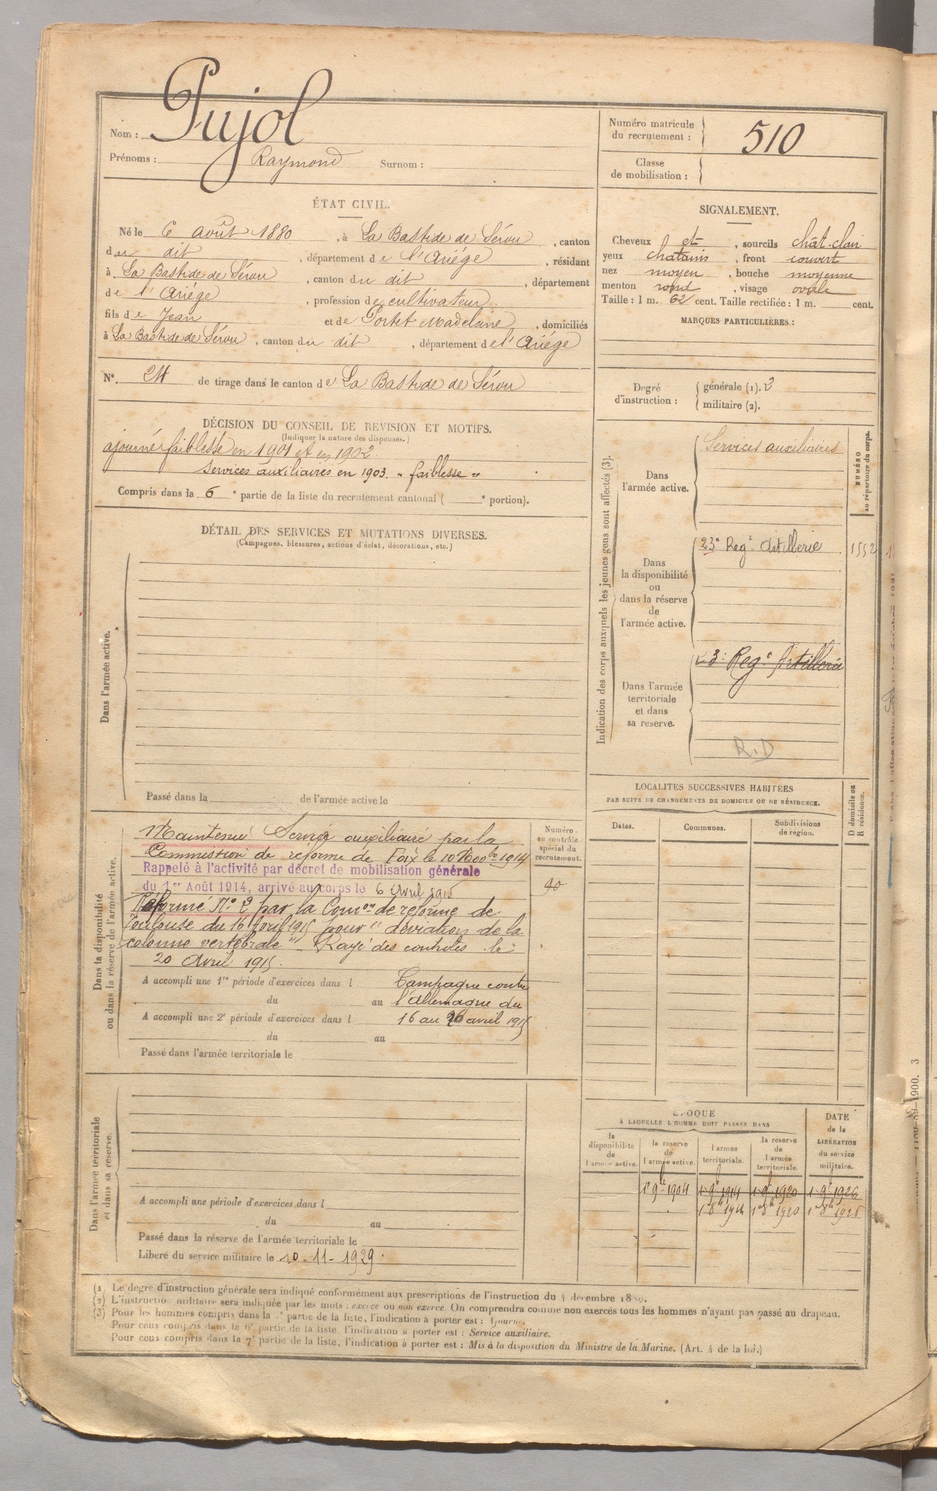 Nom : Pujol
Prénoms : Raymond Surnom :
Numéro matricule du recrutement : 510
Classe de mobilisation :
ÉTAT CIVIL.
Né le 6 août 1880, à La Bastide de Sérou, canton
du dit, département de l'Ariége, résidant
à La Bastide de Sérou, canton du dit, département
de l'Ariége, profession de cultivateur
fils de Jean et de Portet Madelaine, domiciliés
à La Bastide de Sérou, canton du dit, département de l'Ariége
N° 24 de tirage dans le canton de La Bastide de Sérou
SIGNALEMENT.
Cheveux et, sourcils chât. clair
yeux chatains, front couvert
nez moyen, bouche moyenne
menton rond, visage ovale
Taille : 1 m. 62 cent. Taille rectifiée : 1 m. cent.
MARQUES PARTICULIÈRES :
Degré d'instruction : générale (1). 3
militaire (2).
DÉCISION DU CONSEIL DE REVISION ET MOTIFS.
(Indiquer la nature des dispenses.)
ajourné faiblesse en 1901 et en 1902.
Services auxiliaires en 1903. " faiblesse "
Compris dans la 6e partie de la liste du recrutement cantonal ( e portion).
DÉTAIL DES SERVICES ET MUTATIONS DIVERSES.
(Campagnes, blessures, actions d'éclat, décorations, etc.)
Dans l'armée active.
Passé dans la de l'armée active le
Indication des corps auxquels les jeunes gens sont affectés (3).
NUMÉRO au répertoire du corps.
Dans l'armée active.
Services auxiliaires
Dans la disponibilité ou dans la réserve de l'armée active.
23e Regt Artillerie 1552
Dans l'armée territoriale et dans sa reserve.
23e Regt Artillerie
R.D
Dans la disponibilité ou dans la réserve de l'armée active.
Maintenu Service auxiliaire par la
Commission de réforme de Foix le 10 1914
Rappelé à l'activité par décret de mobilisation générale
du 1er Août 1914, arrivé au corps le 6 Avril 1915
Réformé N° 2 par la Comon de réforme de
Toulouse du 16 Avril 1915 pour " déviation de la
colonne vertébrale " Rayé des contrôles le
20 Avril 1915.
A accompli une 1re période d'exercices dans l Campagne contre
du au l'Allemagne du
A accompli une 2e période d'exercices dans l 16 au 20 avril 1915
du au
Passé dans l'armée territoriale le
Numéro. au contrôle spécial du recrutement.
40
LOCALITÉS SUCCESSIVES HABITÉES
PAR SUITE DE CHANGEMENTS DE DOMICILE OU DE RÉSIDENCE.
Dates. Communes. Subdivisions de region. D domicile ou R résidence.
Dans l'armée territoriale et dans sa réserve.
A accompli une période d'exercices dans l
du au
Passé dans la réserve de l'armée territoriale le
Libéré du service militaire le 10-11-1929.
ÉPOQUE
À LAQUELLE L'HOMME DOIT PASSER DANS
la disponibilité de l'armée active. la réserve de l'armée active. l'armée territoriale. la réserve de l'armée territoriale.
DATE de la LIBÉRATION du service militaire.
1er 9bre 1904 1er 9bre 1914 1er 9bre 1920 1er 9bre 1926
1er 8bre 1914 1er 8bre 1920 1er 8bre 1926
(1) Le degré d'instruction générale sera indiqué conformément aux prescriptions de l'instruction du 4 décembre 1889.
(2) L'instruction militaire sera indiquée par les mots : exercé ou non exercé. On comprendra comme non exercés tous les hommes n'ayant pas passé au drapeau.
(3) Pour les hommes compris dans la partie de la liste, l'indication à porter est : Ajourné.
Pour ceux compris dans la 6e partie de la liste, l'indication à porter est : Service auxiliaire.
Pour ceux compris dans la 7e partie de la liste, l'indication à porter est : Mis à la disposition du Ministre de la Marine. (Art. 4 de la loi.)